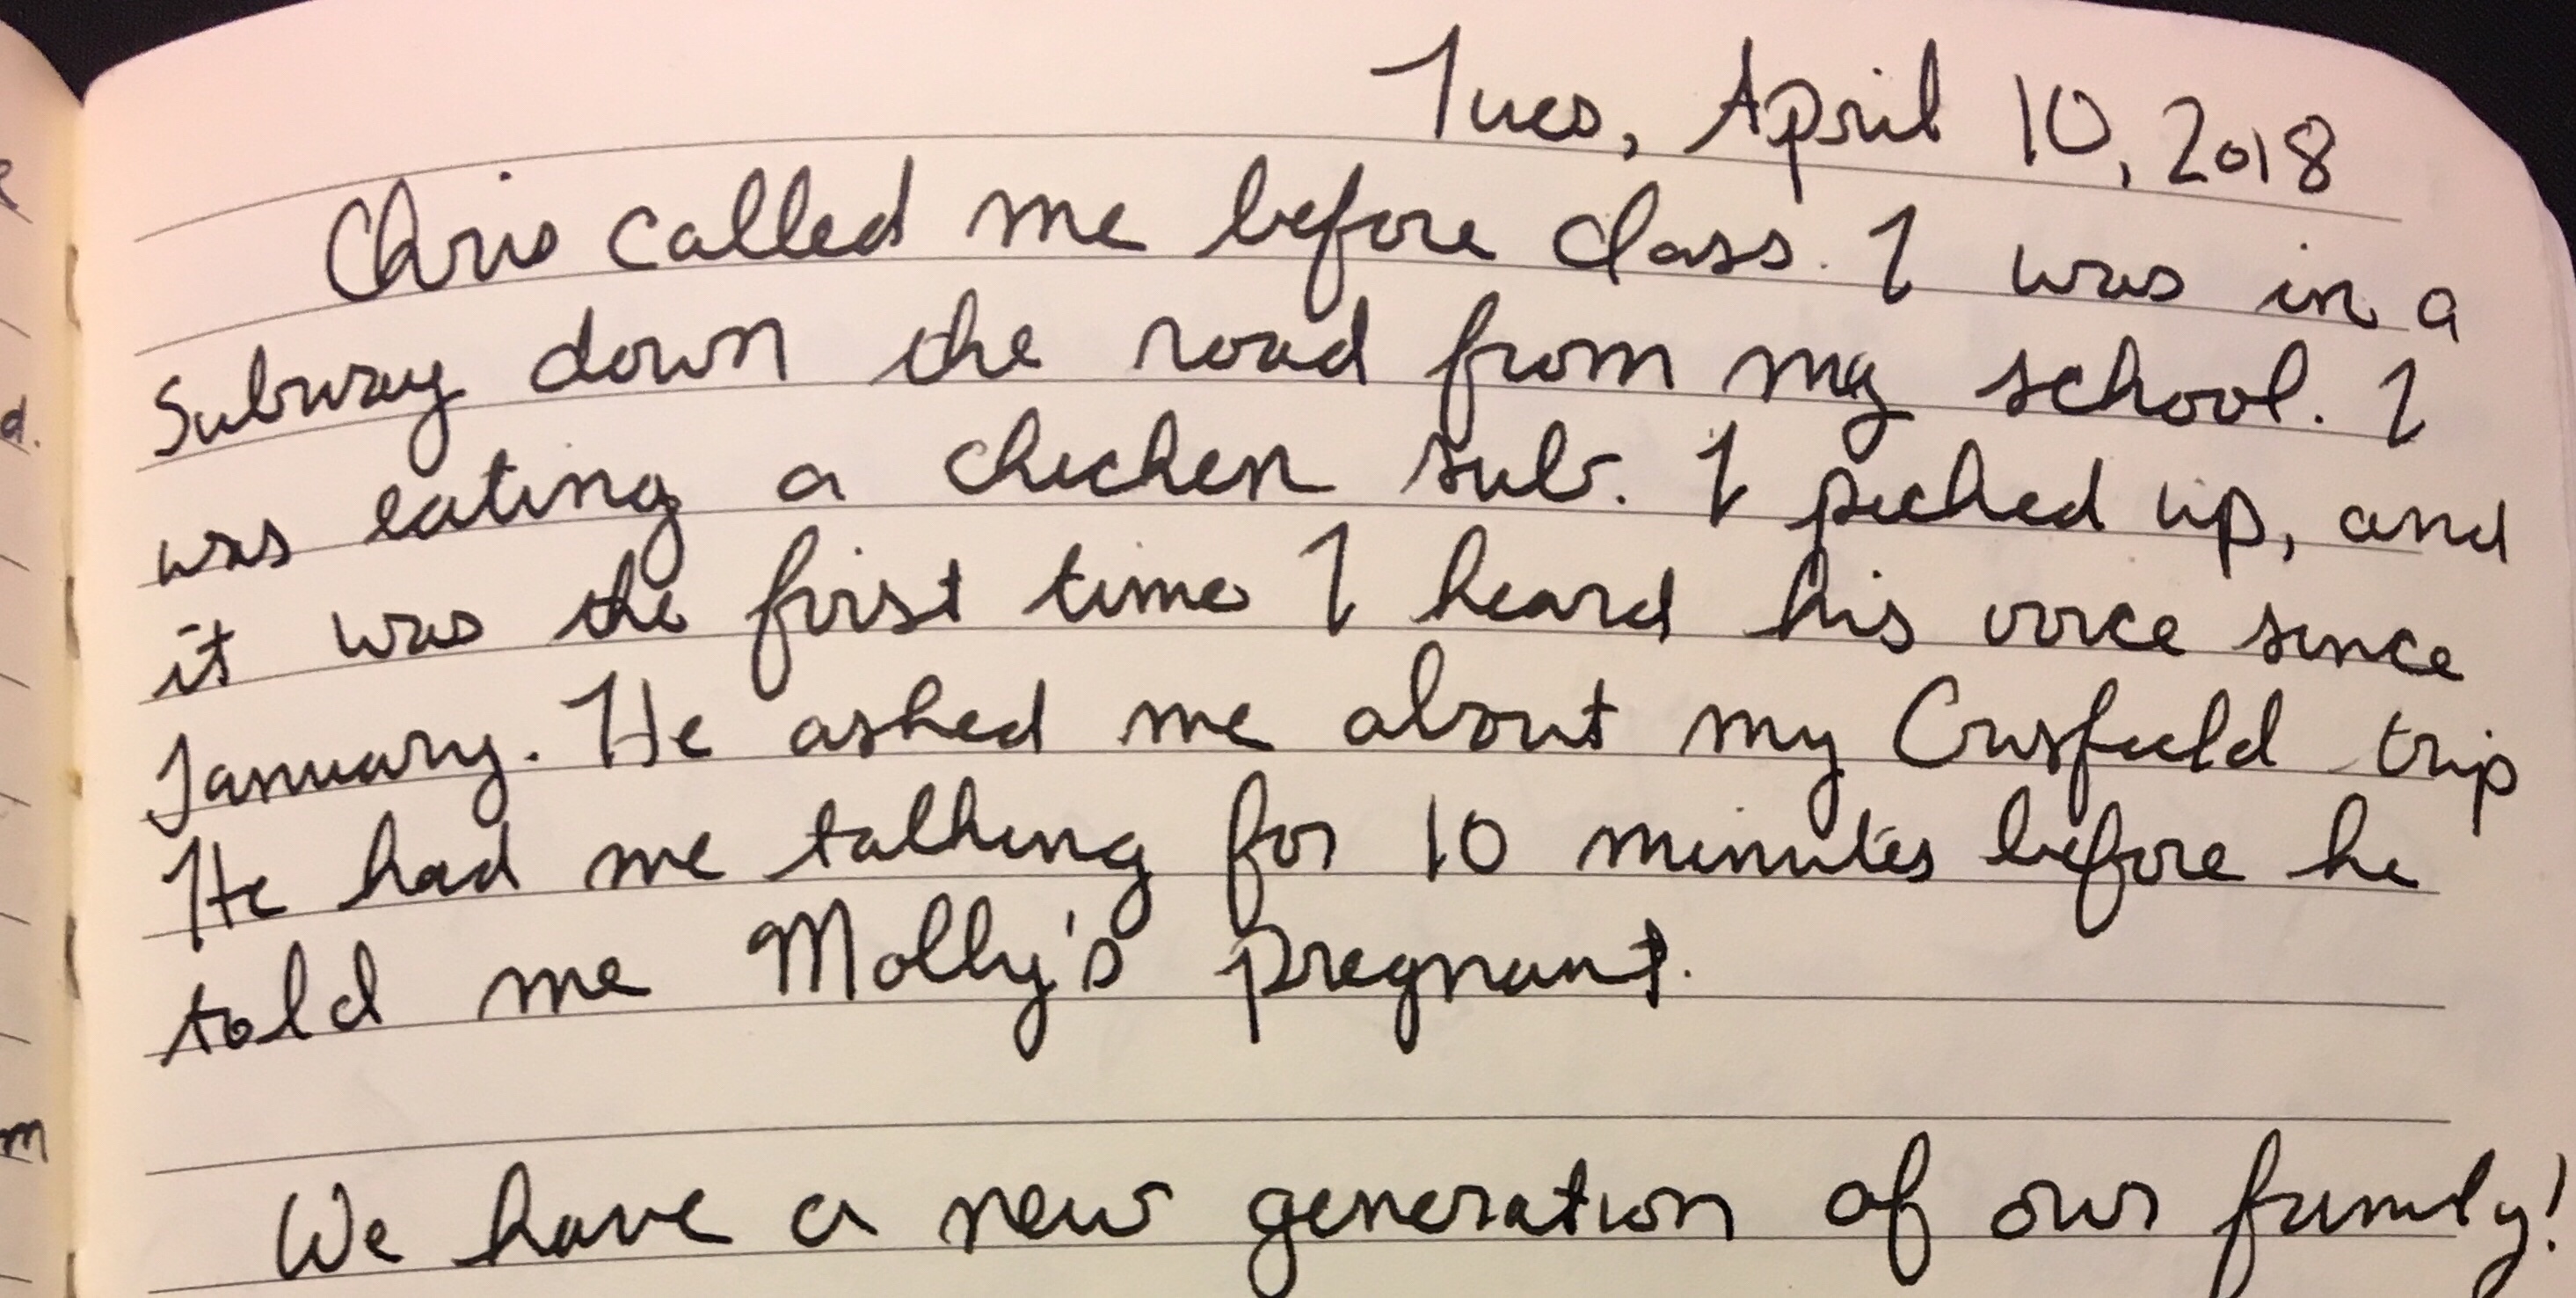 Tues, April 10, 2018
Chris called me before class. I was in a
Subway down the road from my school. I
was eating a chicken sub. I picked up, and
it was the first time I heard his voice since
January. He asked me about my Crisfield trip
He had me talking for 10 minutes before he
told me Molly's pregnant.
We have a new generation of our family!
d.
m